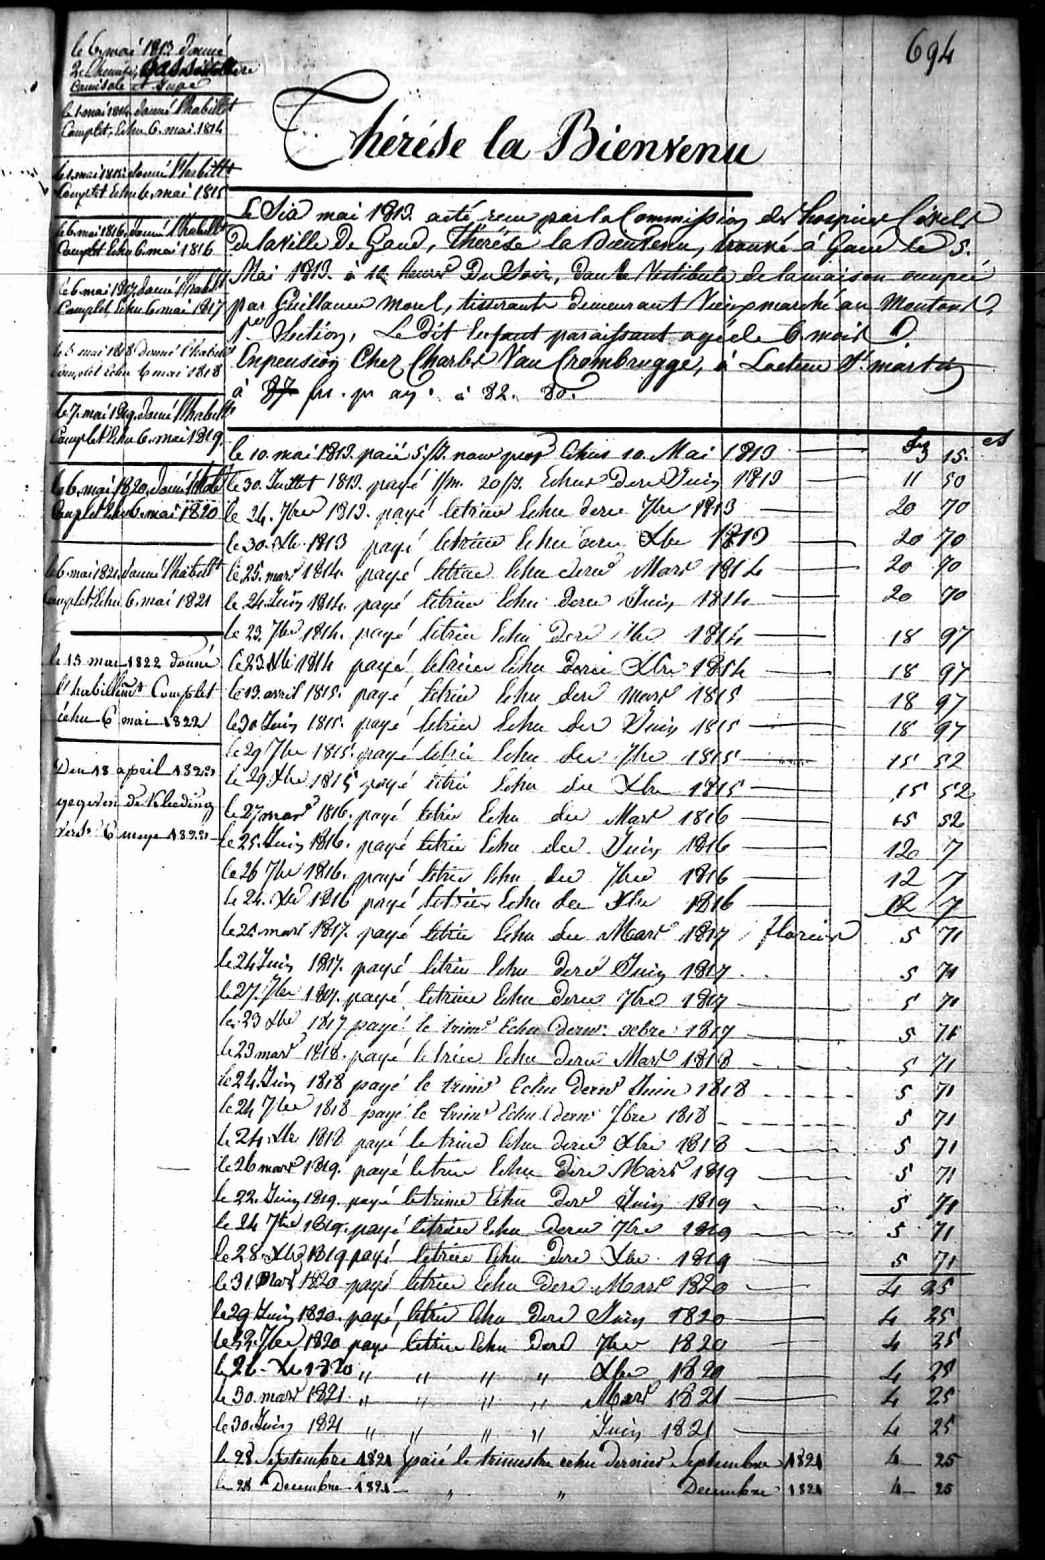 694
le 6 mai 1813 donné
2 Chemises,
Camisole et Jupe
le 1 mai 1814 donné l'habillt
Complet, Echu 6. mai 1814
le 1. mai 1815 donné l'habillt
Complet Echu 6. mai 1815
le 6. mai 1816, donné l'habillt
Complet Echu 6. mai 1816
le 6. mai 1817 donné l'habillt
Complet, Echu 6. mai 1817
le 5 mai 1818 donné l'habillt
complet echu 6 mai 1818
le 7. mai 1819. donné l'habillt
Complet Echu 6. mai 1819.
le 6. mai 1820, donné l'habillt
Complet Echu 6. mai 1820
le 6. mai 1821. donné l'habillt
Complet, Echu 6. mai 1821
le 13 mai 1822 donné
l'habillemt Complet
échu 6 mai 1822
Den 18 april 1823
gegeven de Kleeding
6 meye 1823
Thérése la Bienvenu
Le Six mai 1813. acté, recu par la Commission des hospices Civils
De la ville De Gand, Thérése la Bienvenu, trouvé à Gand le 5.
Mai 1813. à 10 heures Du Soir, dans le Vestibule de la maison occupée
par Guillaume Morel, tisserant demeurant Vieux marché au Moutons,
1re Section, Le dit Enfant paraissant agé de 6 mois
En pension Chez Charles Van Crombrugge, à Laethem St. martin
à 87 frs. pr an. à 82. 80.
le 10. mai 1813. paié 5 fr. pour Echus 10. Mai 1813 3 15.
le 30. Juillet 1813. payé 20 fr. Echus Dere Juin 1813 11 50
le 24. 7bre 1813. payé letrime Echu dere 7bre 1813 20 70
le 30. Xbre 1813 payé letrime Echu dere Xbre 1813 20 70
le 25. mars 1814. payé letrime Echu dere Mars 1814 20 70
le 24 Juin 1814. payé letrime Echu dere Juin 1814 20 70
le 23. 7bre 1814. payé letrime Echu dere 7bre 1814 18 97
le 23 Xbre 1814 payé letrime Echu dere Xbre 1814 18 97
le 13. avril 1815. payé letrime Echu dere Mars 1815 18 97
le 30 Juin 1815. payé letrime Echu der Juin 1815 18 97
le 29 7bre 1815. payé letrime Echu der 7bre 1815 15 52
le 29 Xbre 1815 payé letrime Echu de Xbre 1815 15 52
le 27 mars 1816. payé letrime Echu der Mars 1816 15 52
le 25. Juin 1816. payé letrime Echu der Juin 1816 12 7
le 26 7bre 1816. payé letrime Echu der 7bre 1816 12 7
le 24. Xbre 1816 payé letrime Echu der Xbre 1816 12 7
le 25 mars 1817. payé letrime Echu der Mars 1817 florins 5 71
le 24 Juin 1817. payé letrime Echu dere Juin 1817 5 71
le 27. 7bre 1817. payé letrime Echu dere 7bre 1817 5 71
le 23 Xbre 1817 payé le trime Echu dernr. xcbre 1817 5 71
le 23 mars 1818. payé letrime Echu dere Mars 1818 5 71
le 24. Juin 1818 payé le trime Echu dernr Juin 1818 5 71
le 24 7bre 1818 payé le trime Echu dernr 7bre 1818 5 71
le 24. Xbre 1818 payé le trime Echu dere Xbre 1818 5 71
le 26 mars 1819. payé letrime Echu dere Mars 1819 5 71
le 22. Juin 1819. payé letrime Echu dere Juin 1819 5 71
le 24 7bre 1819. payé letrime Echu dere 7bre 1819 5 71
le 28 Xbre 1819 payé letrime Echu dere Xbre 1819 5 71
le 31 Mars 1820 payé letrime Echu dere Mars 1820 4 25
le 29 Juin 1820. payé, letrime Echu dere Juin 1820 4 25
le 22. 7bre 1820 payé letrime Echu dere 7bre 1820 4 25
le 26 - Xbre 1820 " " " " Xbre 1820 4 25
le 30. mars 1821. " " " " Mars 1821 4 25
le 30. Juin 1821 " " " " Juin 1821 4 25
le 28 Septembre 1821 paié le trimestre echu dernier Septembre 1821 4 25
le 28 Decembre 1821 " " Decembre 1821 4 25